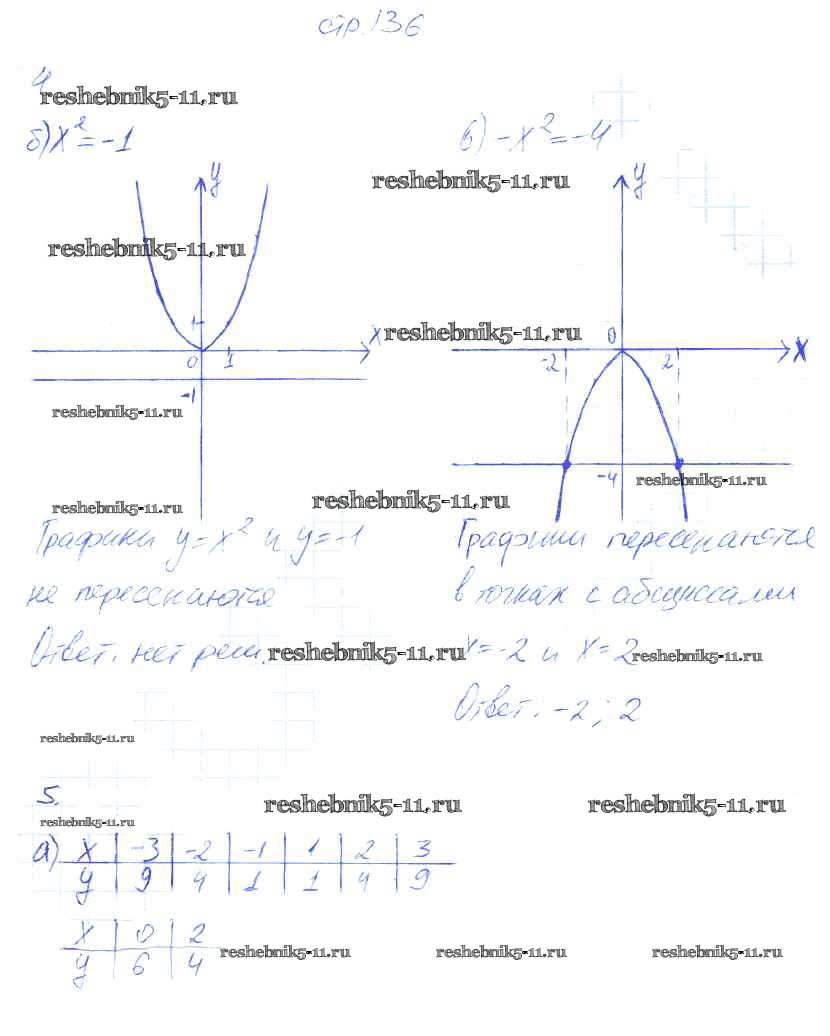 стр. 136
4
reshebnik5-11.ru
б) x² = -1
в) -x² = -4
reshebnik5-11.ru
y
y
reshebnik5-11.ru
1
x
reshebnik5-11.ru
0
x
0
1
-2
2
-1
reshebnik5-11.ru
-4
reshebnik5-11.ru
reshebnik5-11.ru
reshebnik5-11.ru
Графики y = x² и y = -1
не пересекаются
Ответ: нет реш.
reshebnik5-11.ru
Графики пересекаются
в точках с абциссами
x = -2 и x = 2
reshebnik5-11.ru
Ответ: -2; 2
reshebnik5-11.ru
5.
reshebnik5-11.ru
reshebnik5-11.ru
reshebnik5-11.ru
а) x | -3 | -2 | -1 | 1 | 2 | 3
y | 9 | 4 | 1 | 1 | 4 | 9
x | 0 | 2
y | 6 | 4
reshebnik5-11.ru
reshebnik5-11.ru
reshebnik5-11.ru